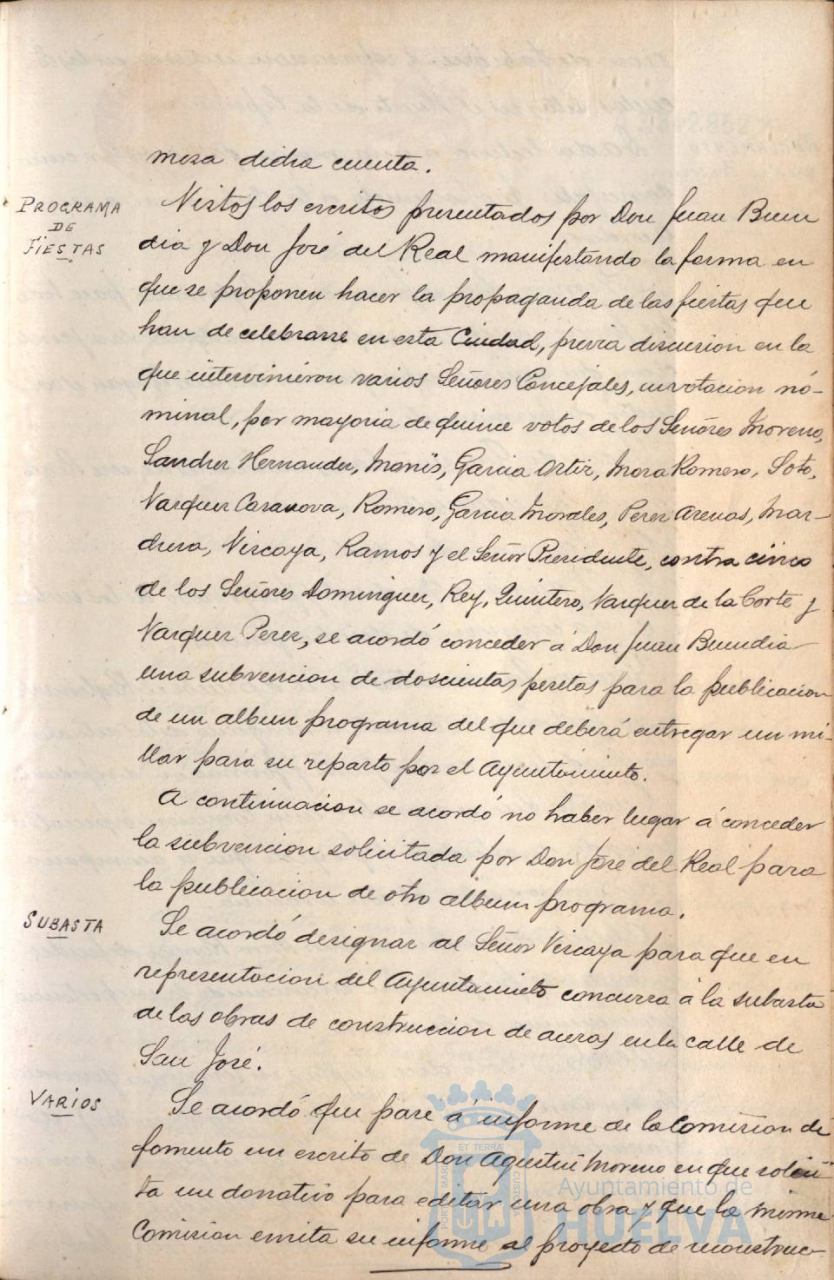 mosa dicha cuenta.
PROGRAMA
DE
FIESTAS
Vistos los escritos presentados por Don Juan Buen
dia y Don José del Real manifestando la forma en
que se proponen hacer la propaganda de las fiestas que
han de celebrarse en esta Ciudad, previa discusion en la
que intervinieron varios Señores Concejales, en votacion no-
minal, por mayoria de quince votos de los Señores Moreno,
Sanchez Hernandez, Monis, Garcia Ortiz, Mora Romero, Soto,
Vazquez Casanova, Romero, Garcia Morales, Perez Arenas, Mar-
chena, Vizcaya, Ramos y el Señor Presidente, contra cinco
de los Señores Dominguez, Rey, Quintero, Vazquez de la Corte y
Vazquez Perez, se acordó conceder á Don Juan Buendia
una subvencion de doscientas pesetas para la publicacion
de un album programa del que deberá entregar un mi-
llar para su reparto por el Ayuntamiento.
A continuacion se acordó no haber lugar á conceder
la subvencion solicitada por Don José del Real para
la publicacion de otro album programa.
SUBASTA
Se acordó designar al Señor Vizcaya para que en
representacion del Ayuntamiento concurra á la subasta
de las obras de construccion de aceras en la calle de
San José.
VARIOS
Se acordó que pase á informe de la Comision de
fomento un escrito de Don Agustin Moreno en que solici
ta un donativo para editar una obra y que la misma
Comision emita su informe al proyecto de reconstruc-
Ayuntamiento de
HUELVA